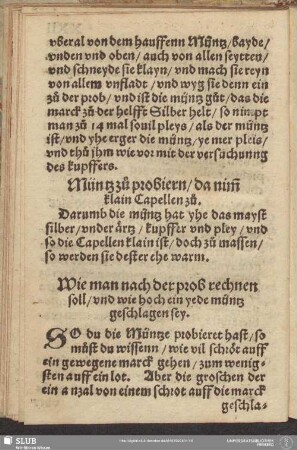 vberal von dem hauffenn Müntz/bayde/
vnden vnd oben/ auch von allen seytten/
vnd schneyde sie klayn/ vnd mach sie reyn
von allem vnfladt/ vnd wyg sie denn ein
zů der prob/ vnd ist die müntz gůt/das die
marck zů der helfft Silber helt/ so nimpt
man zů 14 mal souil pleys/ als der müntz
ist/vnd yhe erger die müntz/ ye mer pleis/
vnd thů jhm wie vor mit der versůchunng
des kupffers.
Müntz zů probiern/ da nim̃
klain Capellen zů.
Darumb die müntz hat yhe das mayst
silber/vnder ärtz/ kupffer vnd pley/ vnd
so die Capellen klain ist/ doch zů massen/
so werden sie dester ehe warm.
Wie man nach der prob rechnen
soll/ vnd wie hoch ein yede müntz
geschlagen sey.
SO du die Müntze probieret hast/ so
můst du wissenn/ wie vil schröt auff
ein gewegene marck gehen/ zum wenig-
sten auff ein lot. Aber die groschen der
ein anzal von einem schrot auff die marck
geschla-
SLUB
Wir führen Wissen.